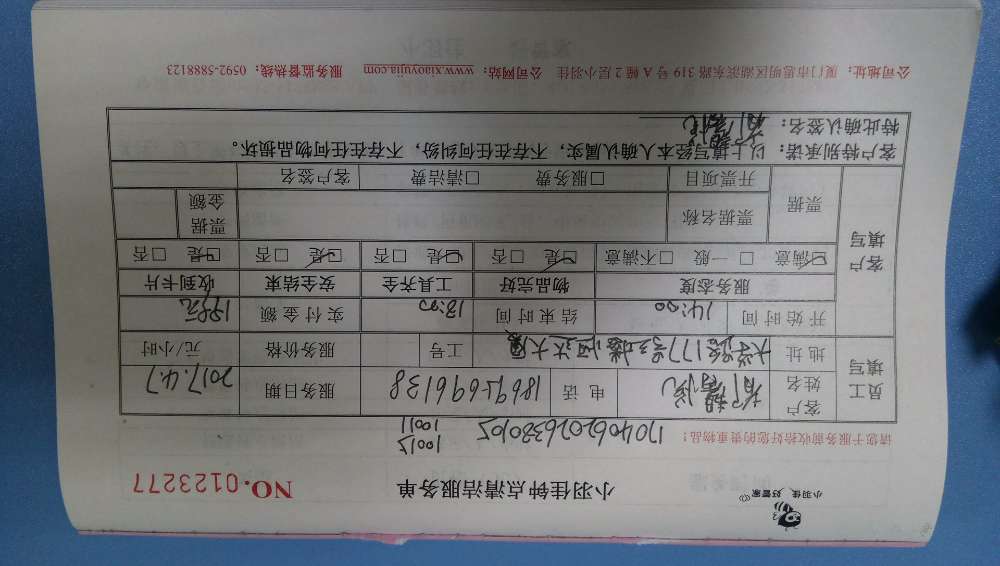 小羽佳 好管家
小羽佳钟点清洁服务单
NO.0123277
请您于服务前收拾好您的贵重物品!
10015
10011
员工填写
客户姓名 电话 18695696138 服务日期 2017.4.7
地址 大学路177号 工号 服务价格 元/小时
开始时间 14:00 结束时间 18:00 实付金额
客户填写
服务态度 物品完好 工具齐全 安全结束 收到卡片
☑满意 □一般 □不满意 ☑是 □否 ☑是 □否 ☑是 □否 ☑是 □否
票据 票据名称 票据金额
开票项目 □服务费 □清洁费 客户签名
客户特别承诺:以上填写经本人确认属实,不存在任何纠纷,不存在任何物品损坏。
特此确认签名:
公司地址:厦门市思明区湖滨东路 319 号 A 幢 2 层小羽佳 公司网站:www.xiaoyujia.com 服务监督热线:0592-5888123